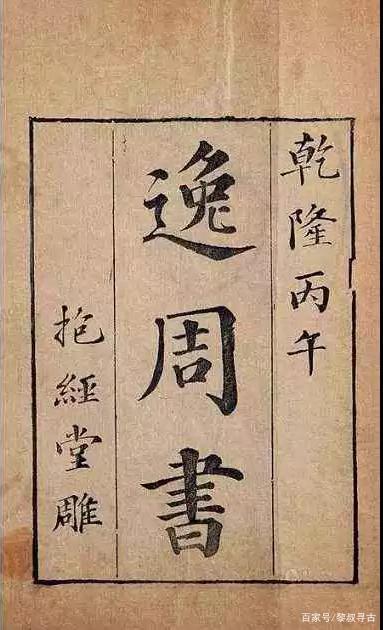 乾隆丙午
逸周書
抱經堂雕
百家号/黎叔寻古